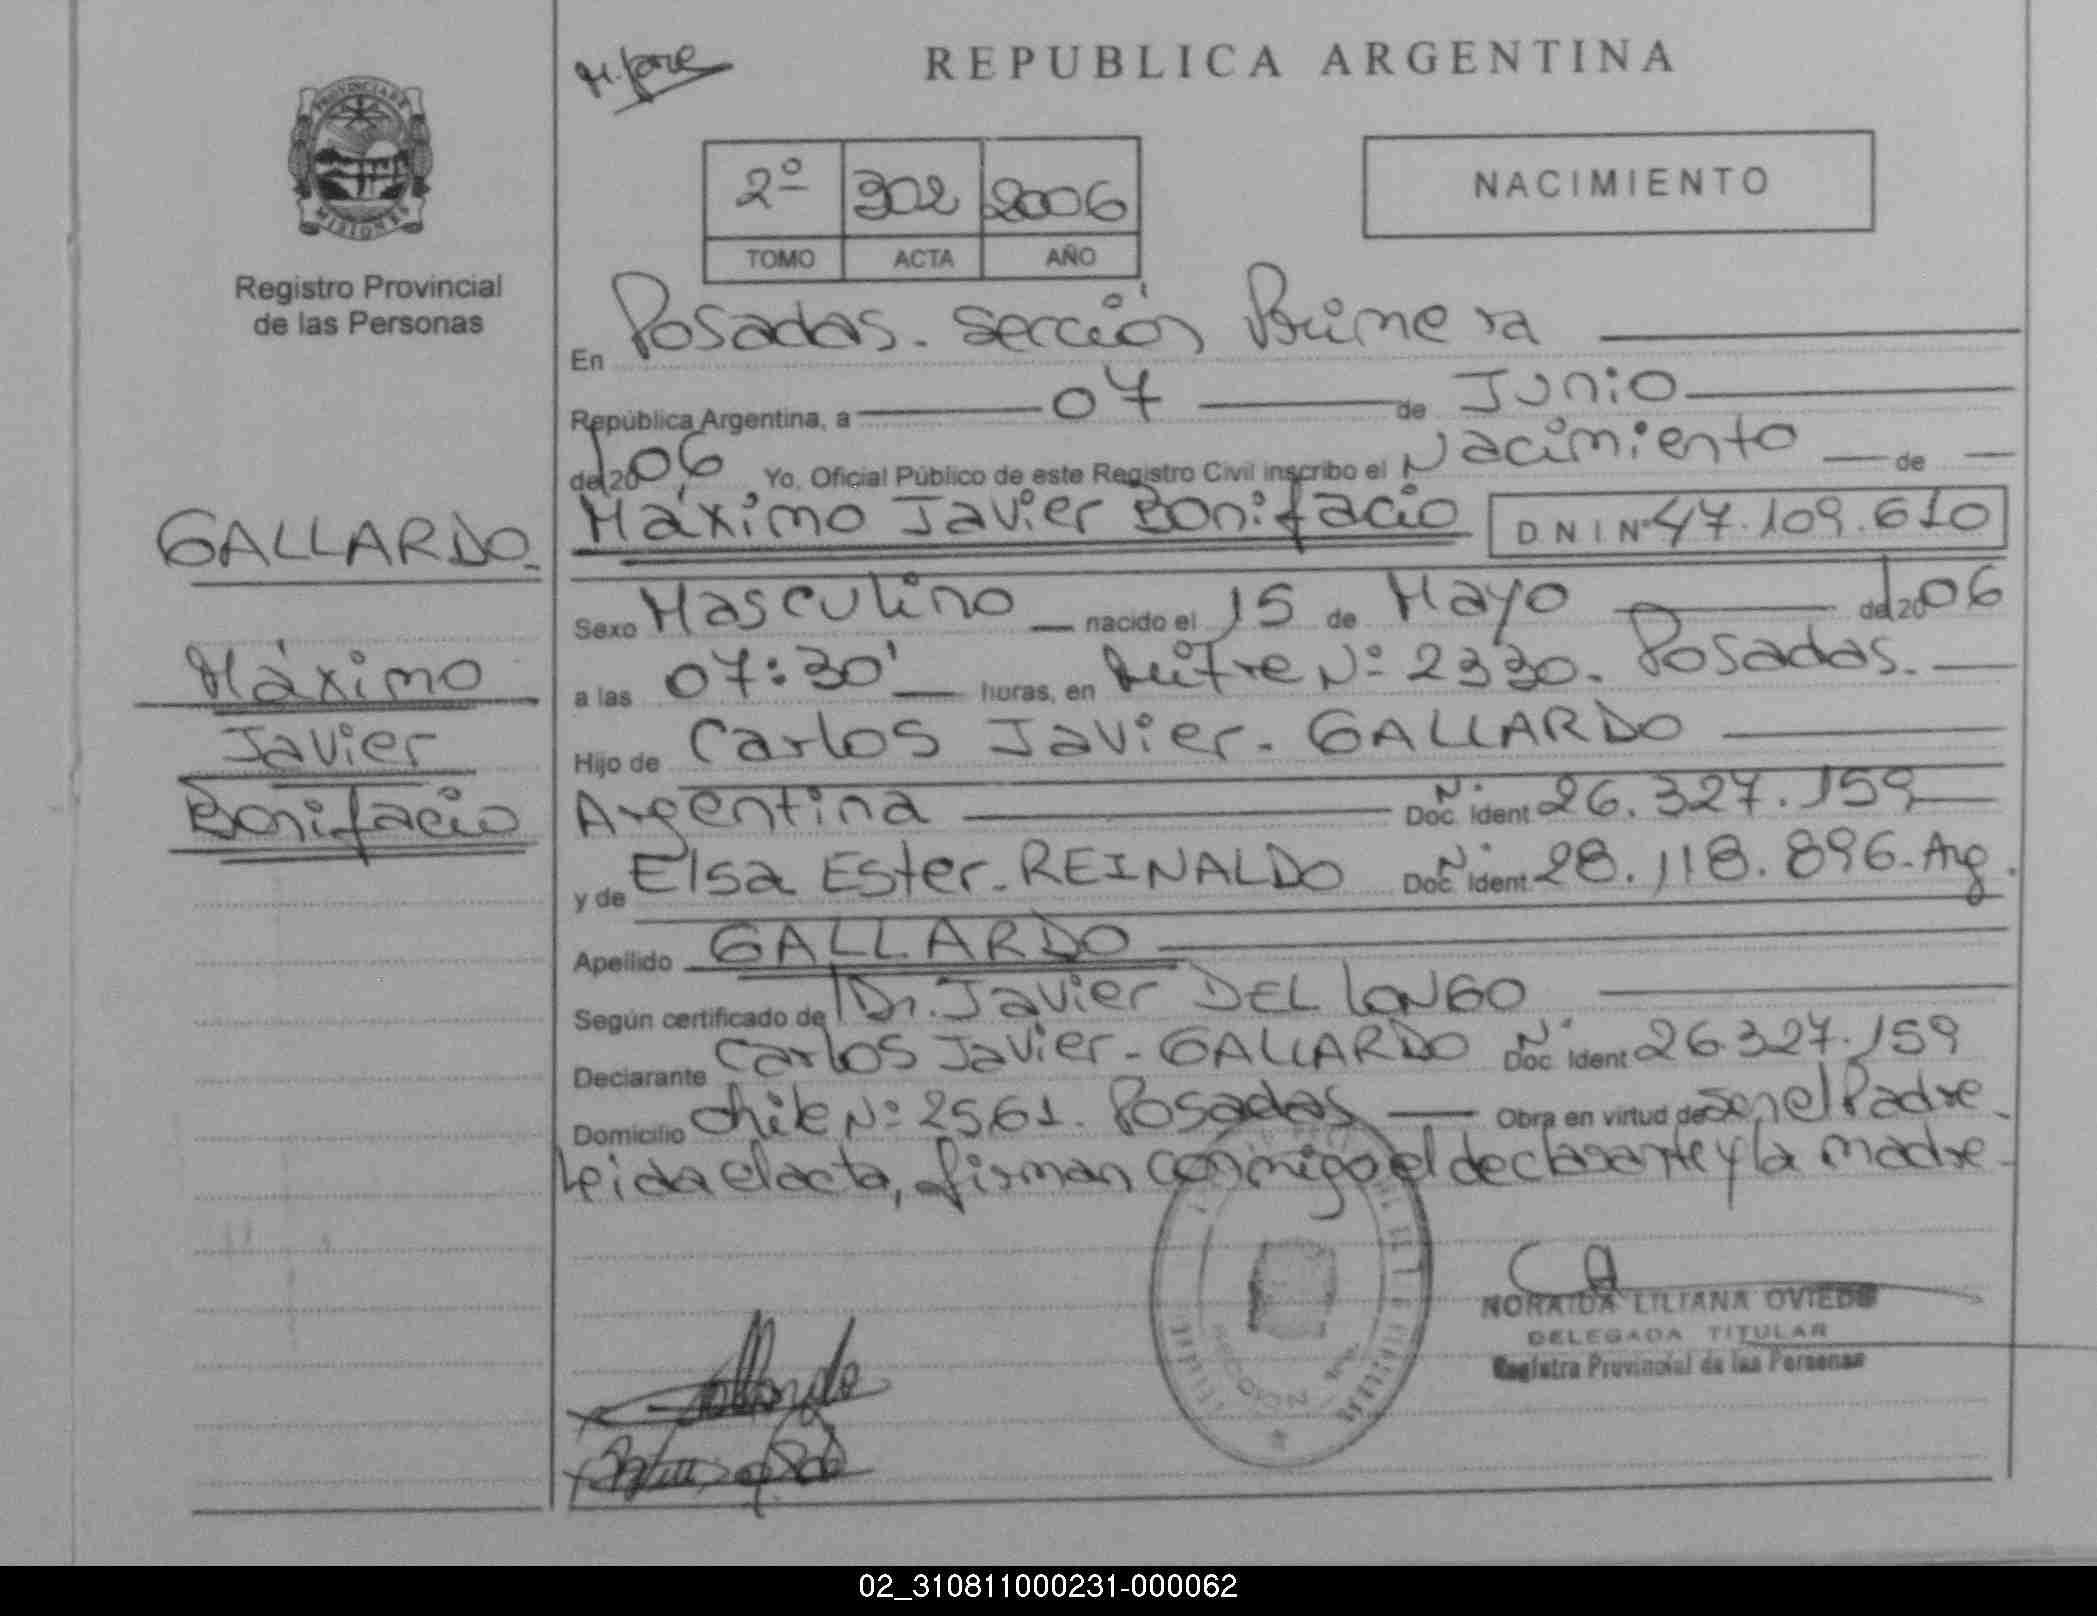 PROVINCIA DE
MISIONES
Registro Provincial
de las Personas
GALLARDO
Máximo
Javier
Bonifacio
REPUBLICA ARGENTINA
2º 302 2006
TOMO ACTA AÑO
NACIMIENTO
En Posadas. Sección Primera
República Argentina, a 07 de Junio
del 2006 Yo, Oficial Público de este Registro Civil inscribo el Nacimiento de
Máximo Javier Bonifacio DNI Nº 47.109.610
Sexo Masculino nacido el 15 de Mayo del 2006
a las 07:30' horas, en Mitre Nº 2330. Posadas.
Hijo de Carlos Javier. GALLARDO
Argentina Nº Doc. Ident 26.327.159
y de Elsa Ester. REINALDO Nº Doc. Ident. 28.118.896 - Arg.
Apellido GALLARDO
Según certificado de Dr. Javier DEL LONGO
Declarante Carlos Javier - GALLARDO Nº Doc. Ident 26.327.159
Domicilio Chile Nº 2561. Posadas Obra en virtud de ser el Padre.
Leida el acta, firman conmigo el declarante y la madre.
NORAIDA LILIANA OVIEDO
DELEGADA TITULAR
Registro Provincial de las Personas
02_310811000231-000062